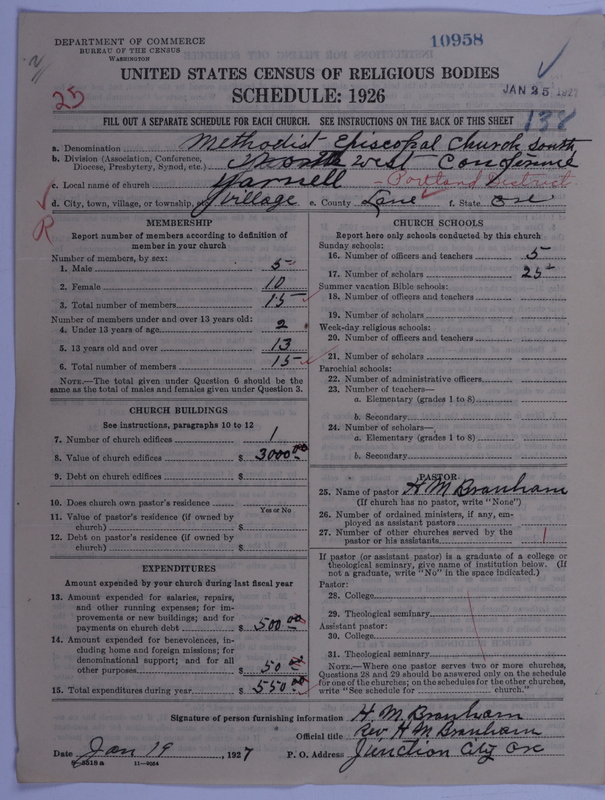 DEPARTMENT OF COMMERCE
BUREAU OF THE CENSUS
WASHINGTON
10958
UNITED STATES CENSUS OF RELIGIOUS BODIES
SCHEDULE: 1926
JAN 25 1927
25
138
FILL OUT A SEPARATE SCHEDULE FOR EACH CHURCH. SEE INSTRUCTIONS ON THE BACK OF THIS SHEET
a. Denomination Methodist Episcopal Church South
b. Division (Association, Conference, Diocese, Presbytery, Synod, etc.) North West Conference
c. Local name of church Yarnell - Portland District
d. City, town, village, or township, etc. Village e. County Lane f. State Ore
R
MEMBERSHIP
Report number of members according to definition of member in your church
Number of members, by sex:
1. Male 5
2. Female 10
3. Total number of members 15
Number of members under and over 13 years old:
4. Under 13 years of age 2
5. 13 years old and over 13
6. Total number of members 15
NOTE.—The total given under Question 6 should be the same as the total of males and females given under Question 3.
CHURCH BUILDINGS
See instructions, paragraphs 10 to 12
7. Number of church edifices 1
8. Value of church edifices $ 3000 00
9. Debt on church edifices $
10. Does church own pastor's residence
Yes or No
11. Value of pastor's residence (if owned by church) $
12. Debt on pastor's residence (if owned by church) $
EXPENDITURES
Amount expended by your church during last fiscal year
13. Amount expended for salaries, repairs, and other running expenses; for improvements or new buildings; and for payments on church debt $ 500 00
14. Amount expended for benevolences, including home and foreign missions; for denominational support; and for all other purposes $ 50 00
15. Total expenditures during year $ 550 00
CHURCH SCHOOLS
Report here only schools conducted by this church
Sunday schools:
16. Number of officers and teachers 5
17. Number of scholars 25
Summer vacation Bible schools:
18. Number of officers and teachers
19. Number of scholars
Week-day religious schools:
20. Number of officers and teachers
21. Number of scholars
Parochial schools:
22. Number of administrative officers
23. Number of teachers—
a. Elementary (grades 1 to 8)
b. Secondary
24. Number of scholars—
a. Elementary (grades 1 to 8)
b. Secondary
PASTOR
25. Name of pastor H M Branham
(If church has no pastor, write "None")
26. Number of ordained ministers, if any, employed as assistant pastors
27. Number of other churches served by the pastor or his assistants 1
If pastor (or assistant pastor) is a graduate of a college or theological seminary, give name of institution below. (If not a graduate, write "No" in the space indicated.)
Pastor:
28. College
29. Theological seminary
Assistant pastor:
30. College
31. Theological seminary
NOTE.—Where one pastor serves two or more churches, Questions 28 and 29 should be answered only on the schedule for one of the churches; on the schedules for the other churches, write "See schedule for church."
Signature of person furnishing information H. M. Branham
Official title Rev. H M Branham
Date Jan 19, 1927 P. O. Address Junction City Ore
8-5518a 11-9564